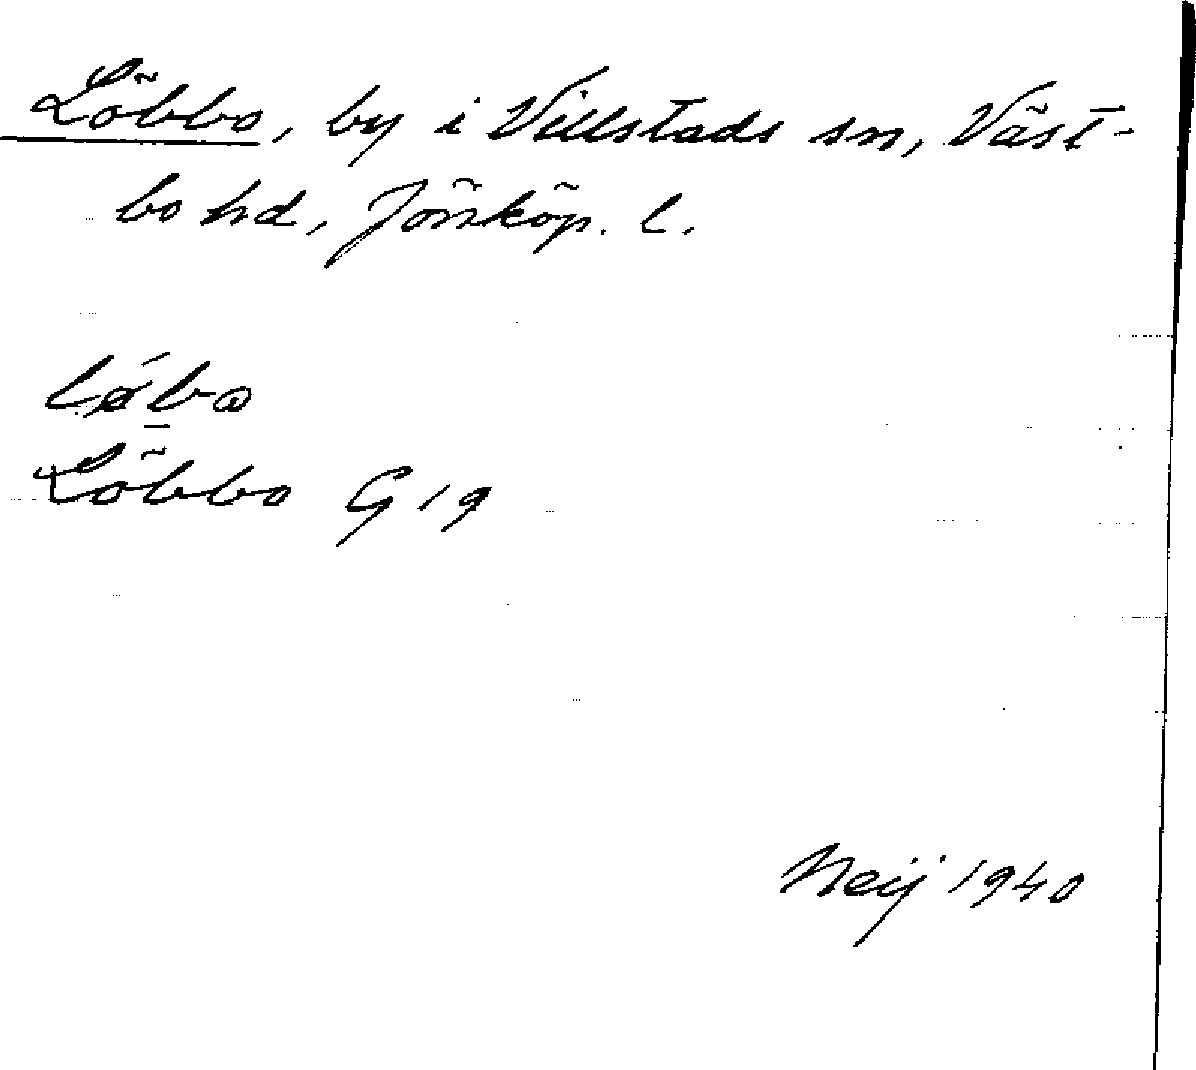 Löbbo, by i Villstads sn, Väst-
bo hd, Jönköp. l.
Löbbo G 19
Neij 1940